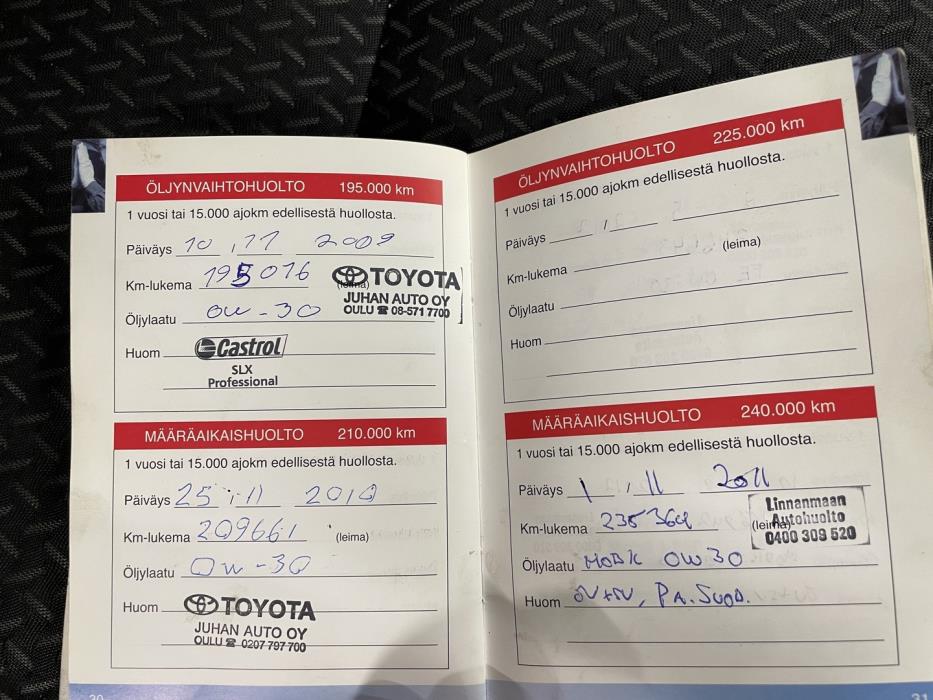 ÖLJYNVAIHTOHUOLTO 195.000 km
1 vuosi tai 15.000 ajokm edellisestä huollosta.
Päiväys 10 , 11 2009
Km-lukema 195 016 (leima)
TOYOTA
JUHAN AUTO OY
OULU ☎ 08-571 7700
Öljylaatu 0w-30
Huom Castrol
SLX
Professional
MÄÄRÄAIKAISHUOLTO 210.000 km
1 vuosi tai 15.000 ajokm edellisestä huollosta.
Päiväys 25 / 11 2010
Km-lukema 209661 (leima)
Öljylaatu 0w-30
Huom TOYOTA
JUHAN AUTO OY
OULU ☎ 0207 797 700
30
ÖLJYNVAIHTOHUOLTO 225.000 km
1 vuosi tai 15.000 ajokm edellisestä huollosta.
Päiväys /
Km-lukema (leima)
Öljylaatu
Huom
MÄÄRÄAIKAISHUOLTO 240.000 km
1 vuosi tai 15.000 ajokm edellisestä huollosta.
Päiväys 1 / 11 2011
Km-lukema (leima)
Linnanmaan
Autohuolto
0400 309 520
Öljylaatu 0W30
Huom
31